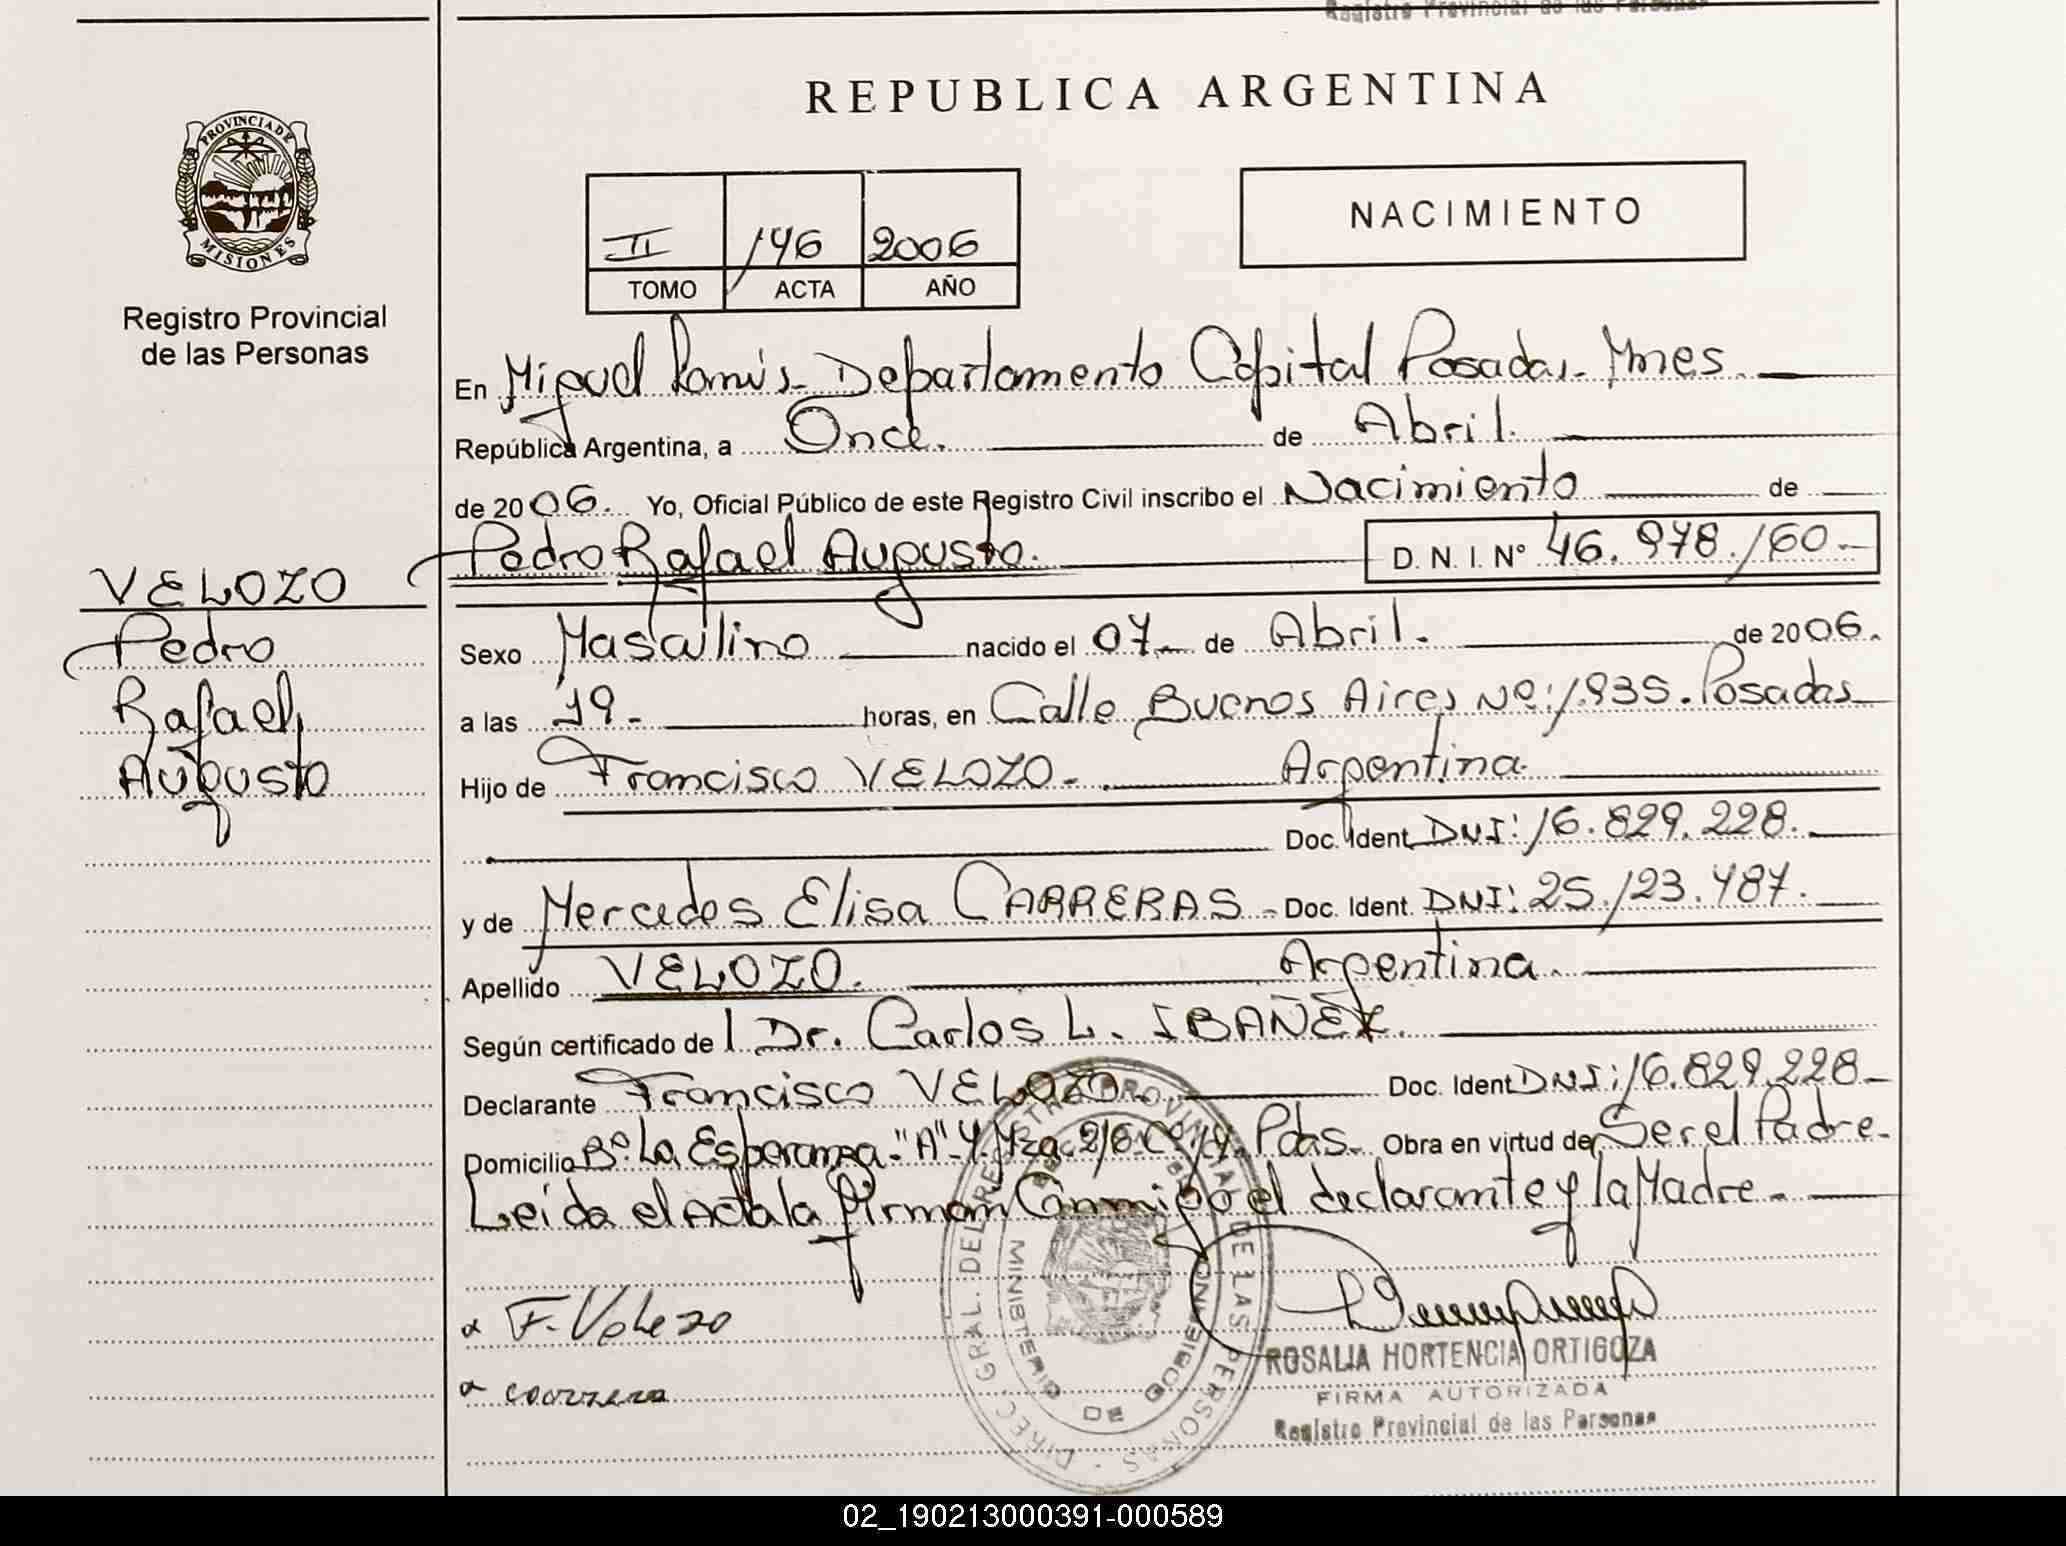 Registro Provincial de las Personas
REPUBLICA ARGENTINA
PROVINCIA DE
MISIONES
Registro Provincial
de las Personas
II 146 2006
TOMO ACTA AÑO
NACIMIENTO
En Miguel Lanús - Departamento Capital Posadas - Mnes.
República Argentina, a Once. de Abril.
de 2006. Yo, Oficial Público de este Registro Civil inscribo el Nacimiento de
Pedro Rafael Augusto. D. N. I. N° 46.978.160.-
VELOZO
Pedro
Rafael
Augusto
Sexo Masculino nacido el 07 de Abril. de 2006.
a las 19 - horas, en Calle Buenos Aires Nº: 1.935. Posadas
Hijo de Francisco VELOZO - Argentina.
Doc. Ident. DNI: 16.829.228.
y de Mercedes Elisa CARRERAS - Doc. Ident. DNI: 25.123.487.
Apellido VELOZO. Argentina.
Según certificado del Dr. Carlos L. IBAÑEZ.
Declarante Francisco VELOZO. Doc. Ident. DNI: 16.829.228 -
Domicilio Bº La Esperanza - "A" 4 Mza. 216 Cº 14. Pdas. Obra en virtud de Ser el Padre -
Leída el Acta la firman Conmigo el declarante y la Madre -
F. Velozo
ROSALIA HORTENCIA ORTIGOZA
FIRMA AUTORIZADA
Registro Provincial de las Personas
DIREC. GRAL. DEL REGISTRO PROVINCIAL DE LAS PERSONAS
MINISTERIO DE GOBIERNO
02_190213000391-000589